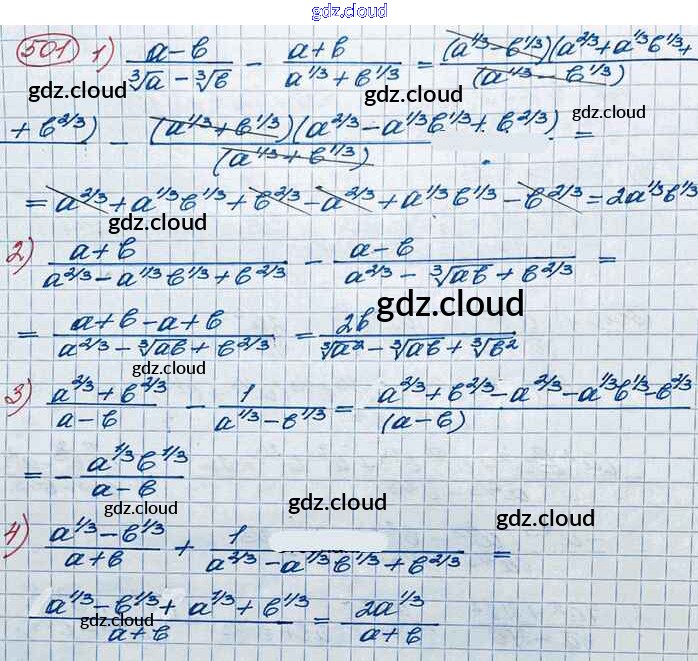 gdz.cloud
501 1) (a-в)/(∛a - ∛в) - (a+в)/(a^1/3 + в^1/3) = (a^1/3 - в^1/3)(a^2/3 + a^1/3 в^1/3 +
+ в^2/3)/(a^1/3 - в^1/3) - (a^1/3 + в^1/3)(a^2/3 - a^1/3 в^1/3 + в^2/3)/(a^1/3 + в^1/3) =
= a^2/3 + a^1/3 в^1/3 + в^2/3 - a^2/3 + a^1/3 в^1/3 - в^2/3 = 2a^1/3 в^1/3
2) (a+в)/(a^2/3 - a^1/3 в^1/3 + в^2/3) - (a-в)/(a^2/3 - ∛aв + в^2/3) =
= (a+в-a+в)/(a^2/3 - ∛aв + в^2/3) = 2в/(∛a² - ∛aв + ∛в²)
3) (a^2/3 + в^2/3)/(a-в) - 1/(a^1/3 - в^1/3) = (a^2/3 + в^2/3 - a^2/3 - a^1/3 в^1/3 - в^2/3)/(a-в)
= - (a^1/3 в^1/3)/(a-в)
4) (a^1/3 - в^1/3)/(a+в) + 1/(a^2/3 - a^1/3 в^1/3 + в^2/3) =
(a^1/3 - в^1/3 + a^1/3 + в^1/3)/(a+в) = 2a^1/3/(a+в)
gdz.cloud
gdz.cloud
gdz.cloud
gdz.cloud
gdz.cloud
gdz.cloud
gdz.cloud
gdz.cloud
gdz.cloud
gdz.cloud